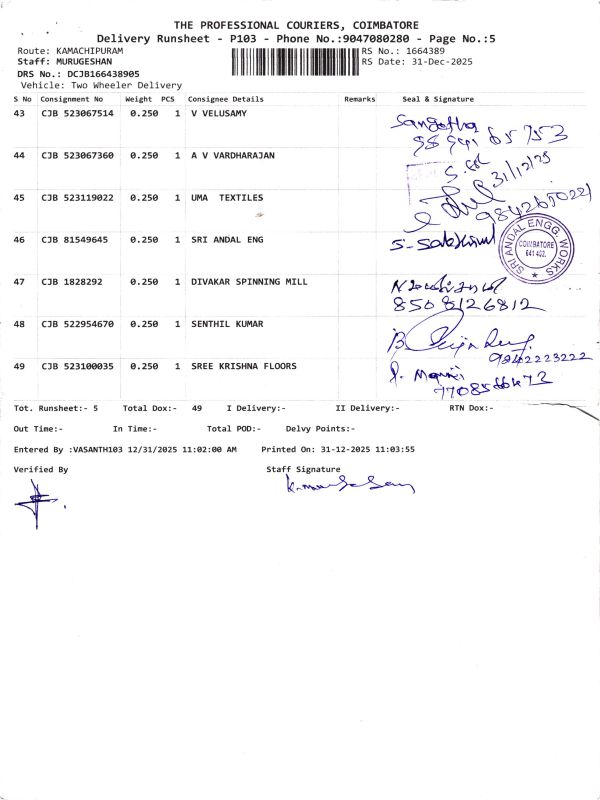 THE PROFESSIONAL COURIERS, COIMBATORE
Delivery Runsheet - P103 - Phone No.:9047080280 - Page No.:5
Route: KAMACHIPURAM
RS No.: 1664389
Staff: MURUGESHAN
RS Date: 31-Dec-2025
DRS No.: DCJB166438905
Vehicle: Two Wheeler Delivery
S No Consignment No Weight PCS Consignee Details Remarks Seal & Signature
43 CJB 523067514 0.250 1 V VELUSAMY
44 CJB 523067360 0.250 1 A V VARDHARAJAN
31/12/25
45 CJB 523119022 0.250 1 UMA TEXTILES
46 CJB 81549645 0.250 1 SRI ANDAL ENG
SRI ANDAL ENGG. WORKS
COIMBATORE
641 402.
47 CJB 1828292 0.250 1 DIVAKAR SPINNING MILL
8508126812
48 CJB 522954670 0.250 1 SENTHIL KUMAR
9842223222
49 CJB 523100035 0.250 1 SREE KRISHNA FLOORS
Tot. Runsheet:- 5 Total Dox:- 49 I Delivery:- II Delivery:- RTN Dox:-
Out Time:- In Time:- Total POD:- Delvy Points:-
Entered By :VASANTH103 12/31/2025 11:02:00 AM Printed On: 31-12-2025 11:03:55
Verified By Staff Signature